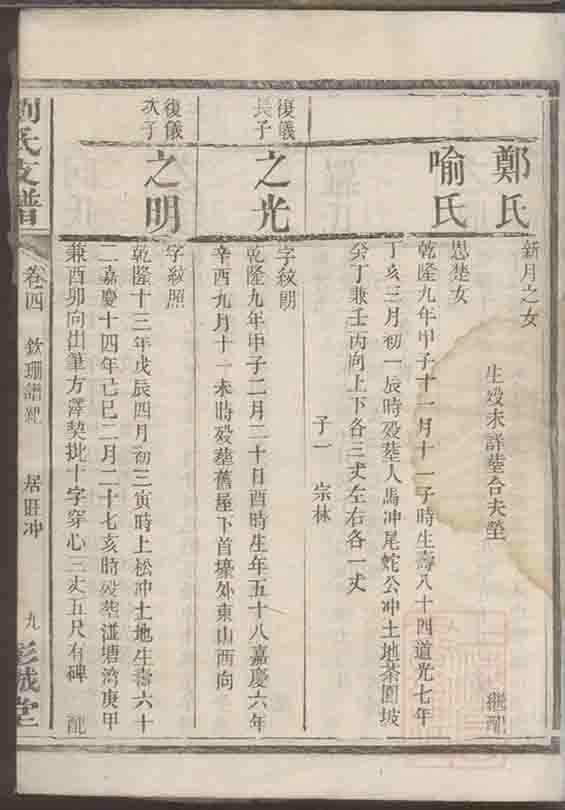 鄭氏
新月之女
生歿未詳塟合夫塋
繼配
喻氏
思楚女
乾隆九年甲子十一月十一子時生壽八十四道光七年
丁亥三月初一辰時歿塟人馬冲尾蛇公冲土地茶園坡
癸丁兼壬丙向上下各三丈左右各一丈
子一 宗林
復儀
長子
之光
字紋朗
乾隆九年甲子二月二十日酉時生年五十八嘉慶六年
辛酉九月十一未時歿塟舊屋下首壕外東山西向
復儀
次子
之明
字紋照
乾隆十三年戊辰四月初三寅時上松冲土地生壽六十
二嘉慶十四年己巳二月二十七亥時歿塟湴塘湾庚甲
兼酉卯向出筆方澤契批十字穿心三丈五尺有碑 配
劉氏支譜
卷四
欽珊譜
居旺冲
九
彭城堂